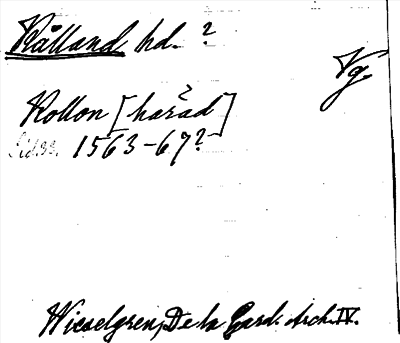 Kålland hd. ?
Vg.
Kollon [härad]
?
Sid. 1563–67?
Wieselgren, De la Gard. Arch. IV.